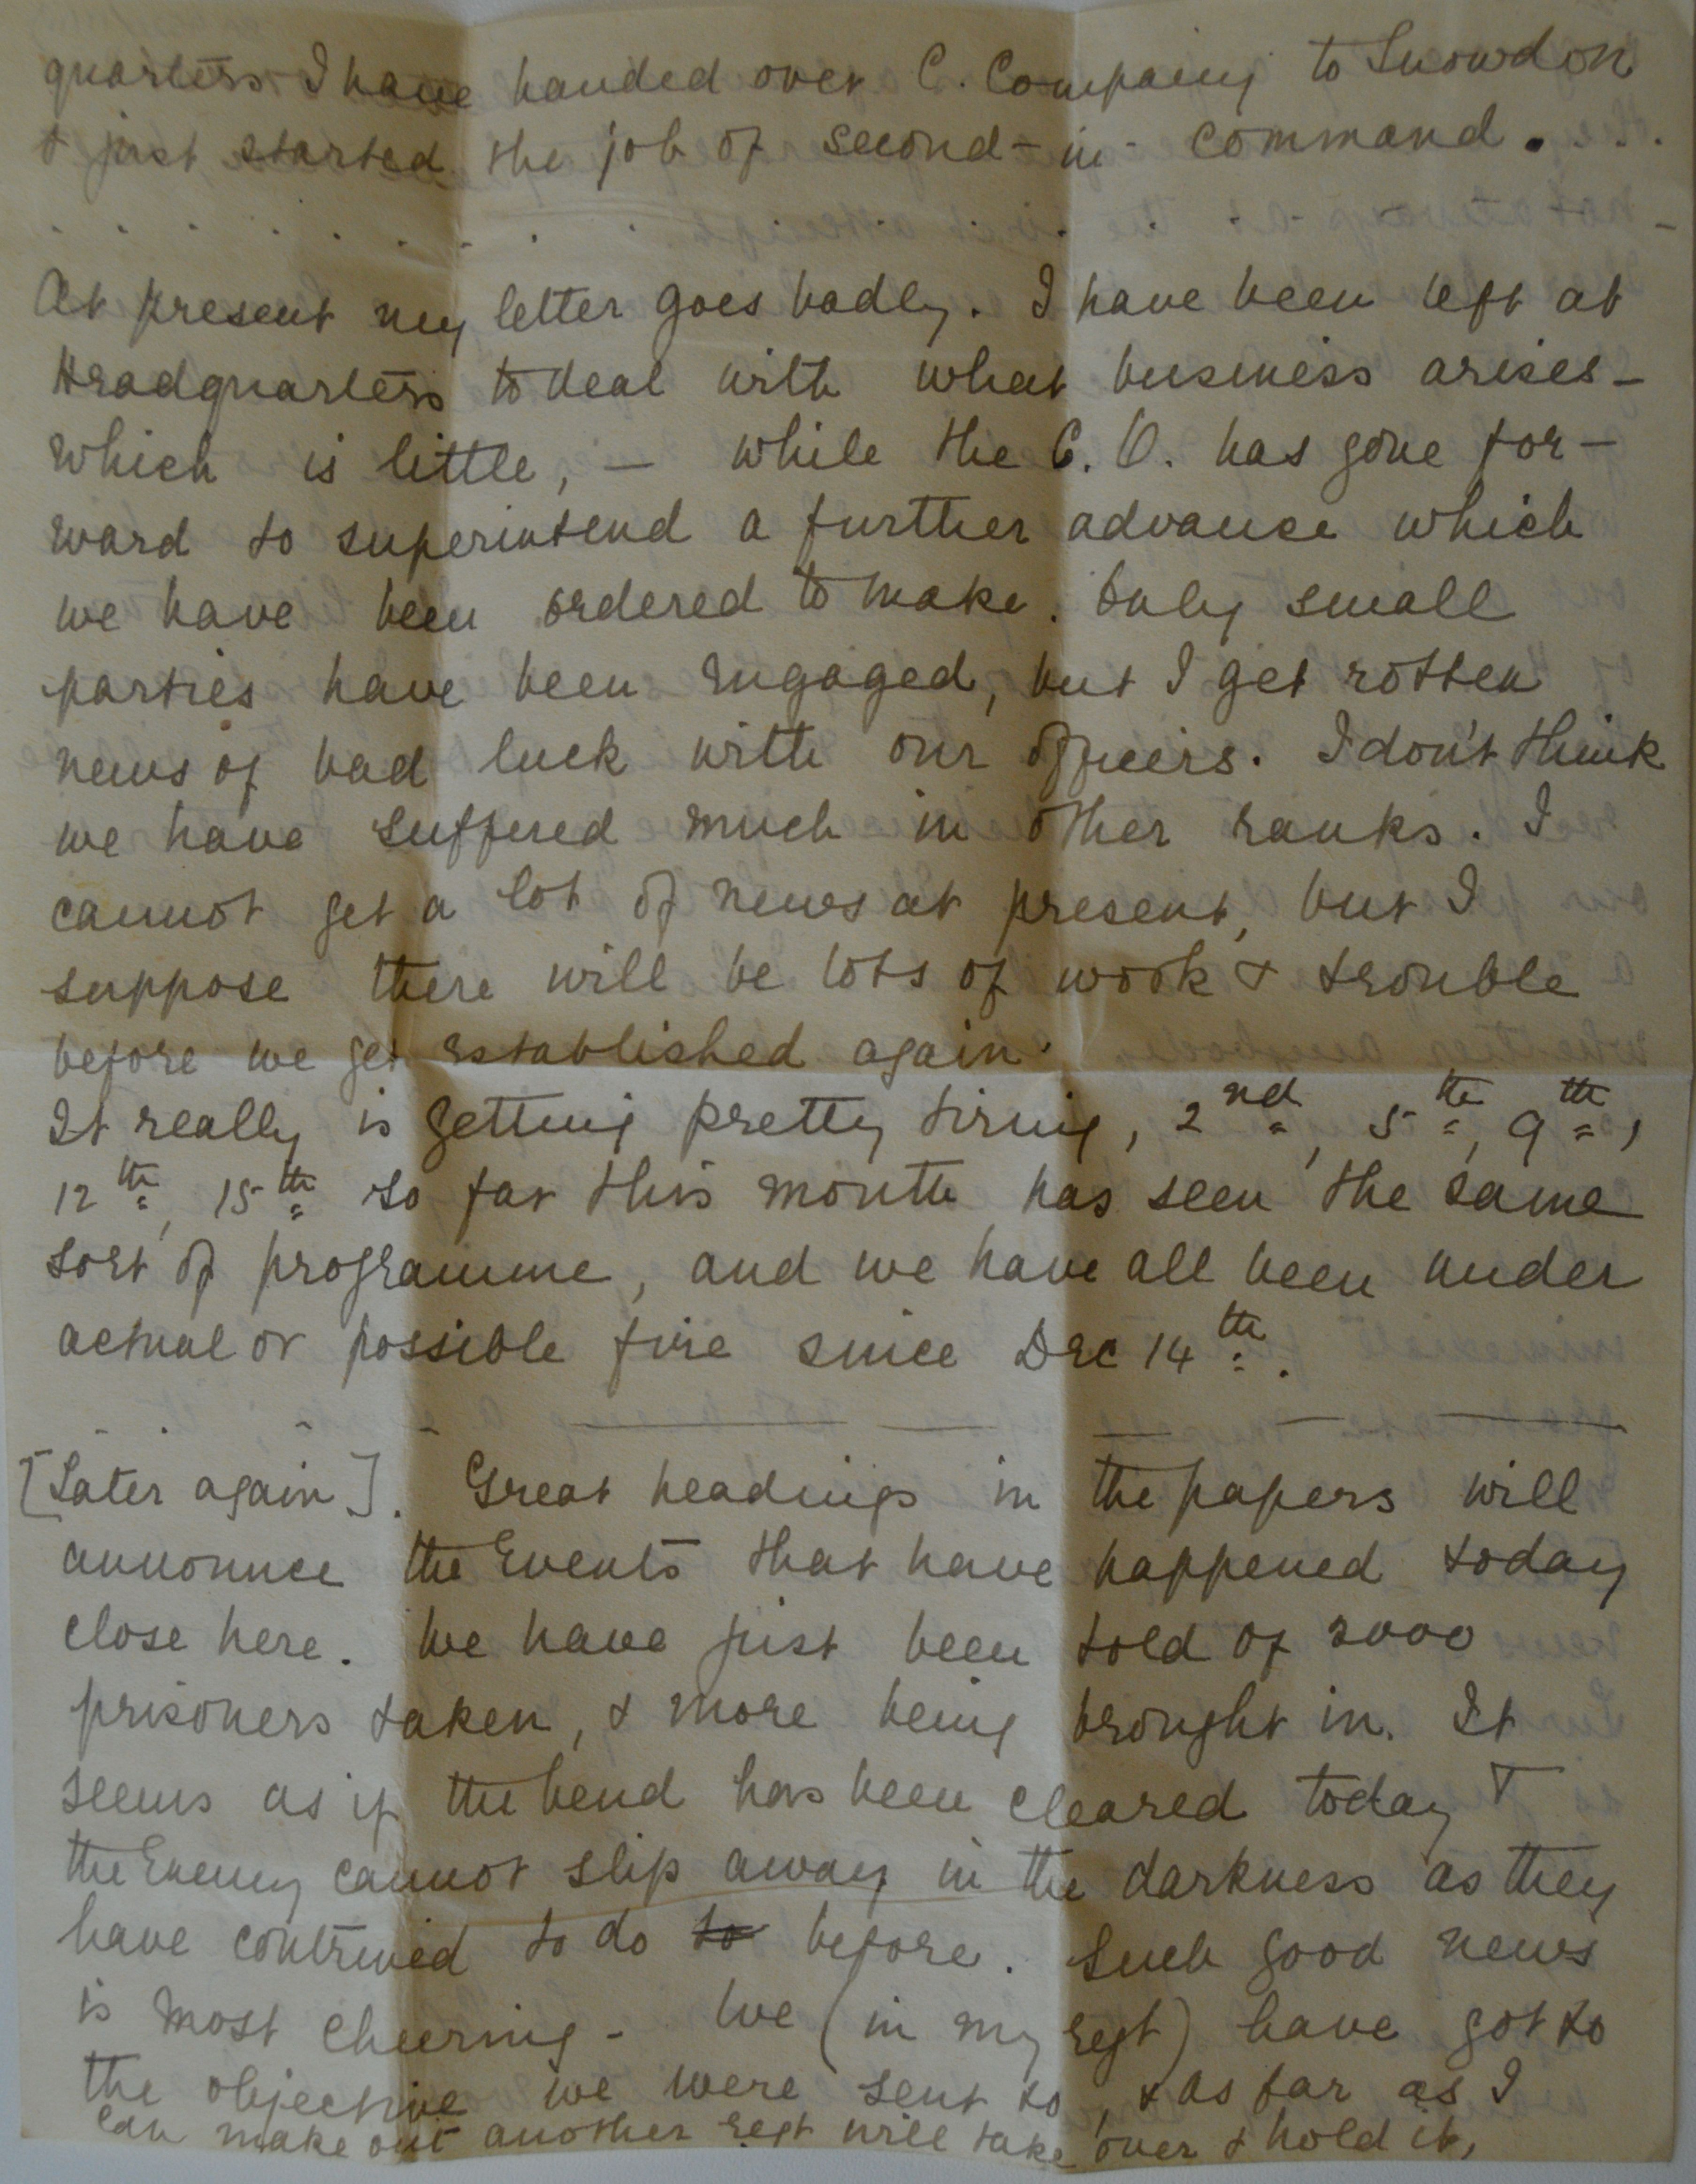 quarters I have handed over C. Company to Snowdon
& just started the job of second-in-command. . .
. . . . . . . . . . . . . -
At present my letter goes badly. I have been left at
Headquarters to deal with what business arises -
which is little, — while the C.O. has gone for-
ward to superintend a further advance which
we have been ordered to make. Only small
parties have been engaged, but I get rotten
news of bad luck with our officers. I don't think
we have suffered much in other ranks. I
cannot get a lot of news at present, but I
suppose there will be lots of work & trouble
before we get established again.
It really is getting pretty tiring, 2nd, 5th, 9th,
12th, 15th so far this month has seen the same
sort of programme, and we have all been under
actual or possible fire since Dec 14th.
[Later again]. Great headings in the papers will
announce the events that have happened today
close here. We have just been told of 2000
prisoners taken, & more being brought in. It
seems as if the bend has been cleared today &
the Enemy cannot slip away in the darkness as they
have contrived to do to before. Such good news
is most cheering - We (in my regt) have got to
the objective we were sent to, & as far as I
can make out another regt will take over & hold it,